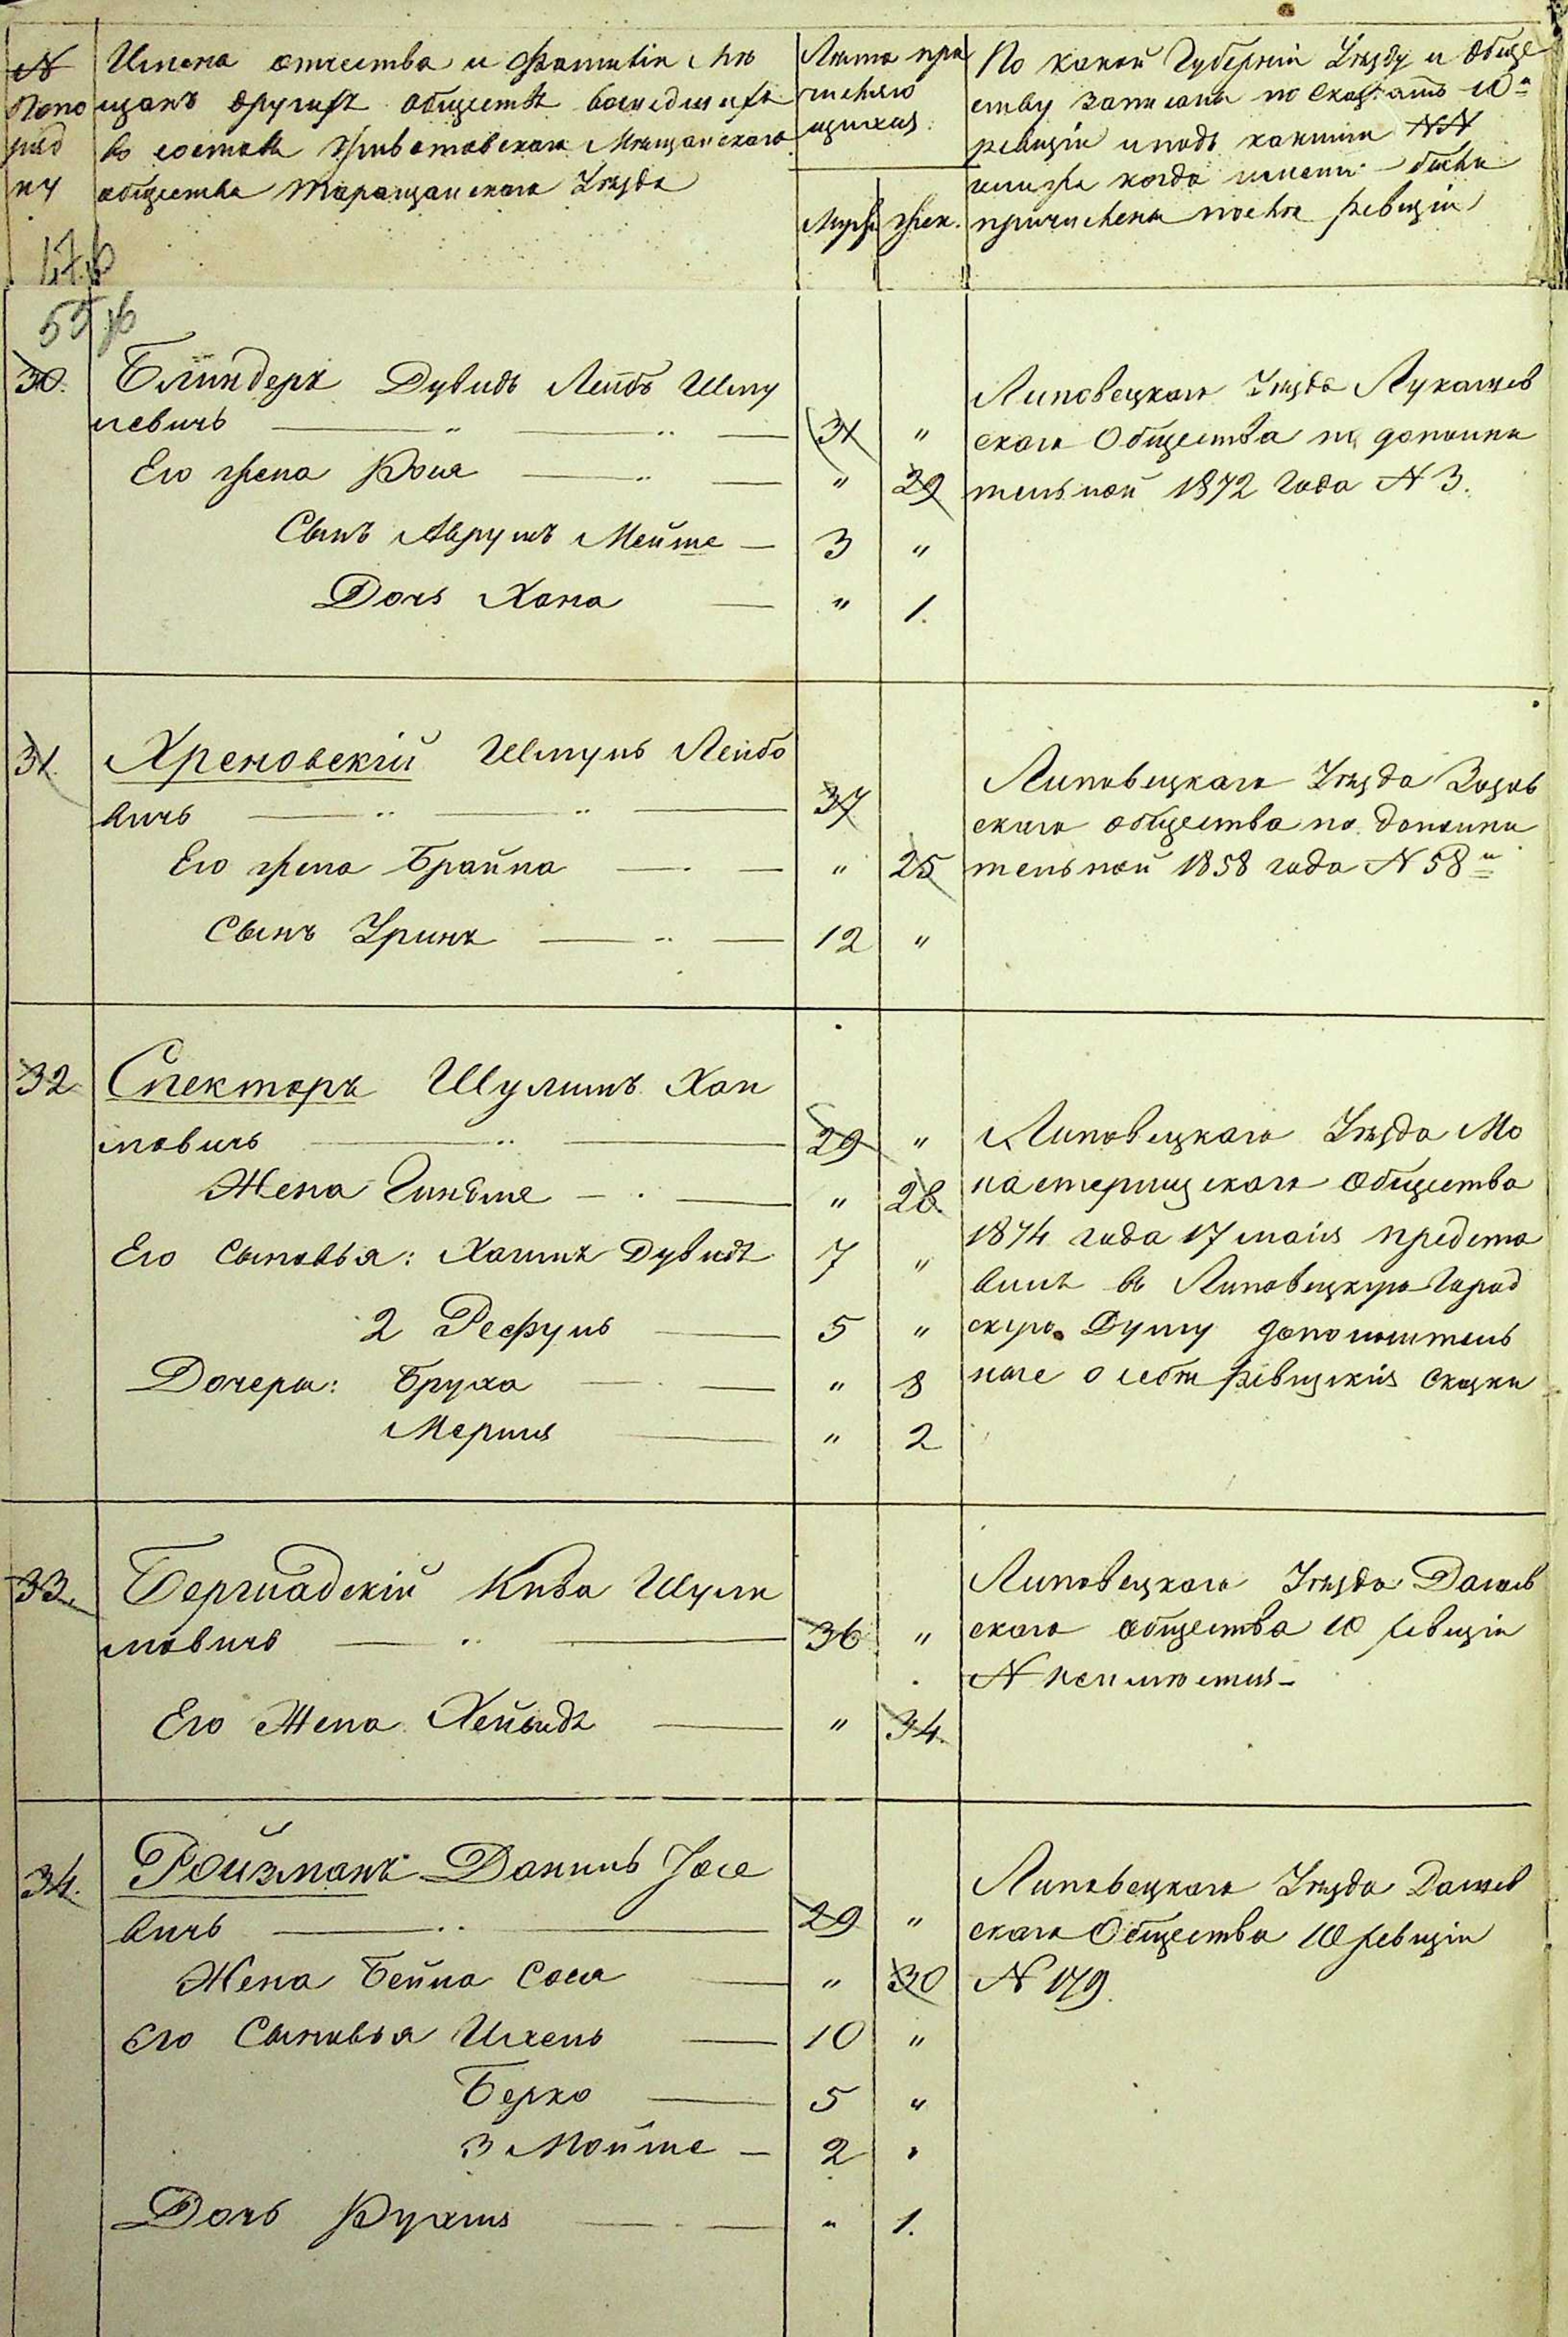 N Попо ряд ку
Имена отчества и Фамилiи Мѣ
щанъ другихъ обществъ вошедшихъ
въ составъ Животовскаго Мѣщанскаго
общества Таращанскаго Уѣзда
Лѣта при
числяю
щихся.
Муж. жен.
По какой Губернiи Уѣзду и обще
ству записаны по сказкамъ 10й
ревизiи и подъ какими NN
или же когда именно были
причислены послѣ ревизiи
30. Блиндеръ Дувидъ Лейбъ Шму
левичъ — " — " — 31 "
Липовецкаго Уѣзда Лукашев
скаго Общества по дополни
тельной 1872 года N 3.
Его жена Рося — " — " 29
Сынъ Аврумъ Мейше — 3 "
Дочь Хана — " 1.
31. Хреновскiй Шмуль Лейбо
вичъ — " — " — 37
Липовецкаго Уѣзда Зозов
скаго общества по дополни
тельной 1858 года N 58й
Его жена Брайна — " — " 25
Сынъ Уринъ — " — 12 "
32 Спекторъ Шулимъ Хаи
мовичъ — " — 29 "
Липовецкаго Уѣзда Мо
настерищскаго общества
1874 года 17 маiя предста
вилъ въ Липовецкую Город
скую Думу дополнитель
ное о себѣ ревизскiя сказки
Жена — " 28
Его Сыновья: Хаимъ Дувидъ 7 "
2 Рефуль — 5 "
Дочери: Бруха — " 8
Мерия — " 2
33. Бершадскiй Кива Шули
мовичъ — " — 36 "
Липовецкаго Уѣзда Дашев
скаго общества 10 ревизiи
N неимѣется
Его Жена — " 34.
34. Ройзманъ Даниль Iосе
вичъ — " — 29 "
Липовецкаго Уѣзда Дашев
скаго Общества 10 ревизiи
N 179.
Жена Бейла Сося — " 30
Его Сыновья Ихель — 10 "
Берко — 5 "
3 Мойше — 2 "
Дочь Рухля — " 1.